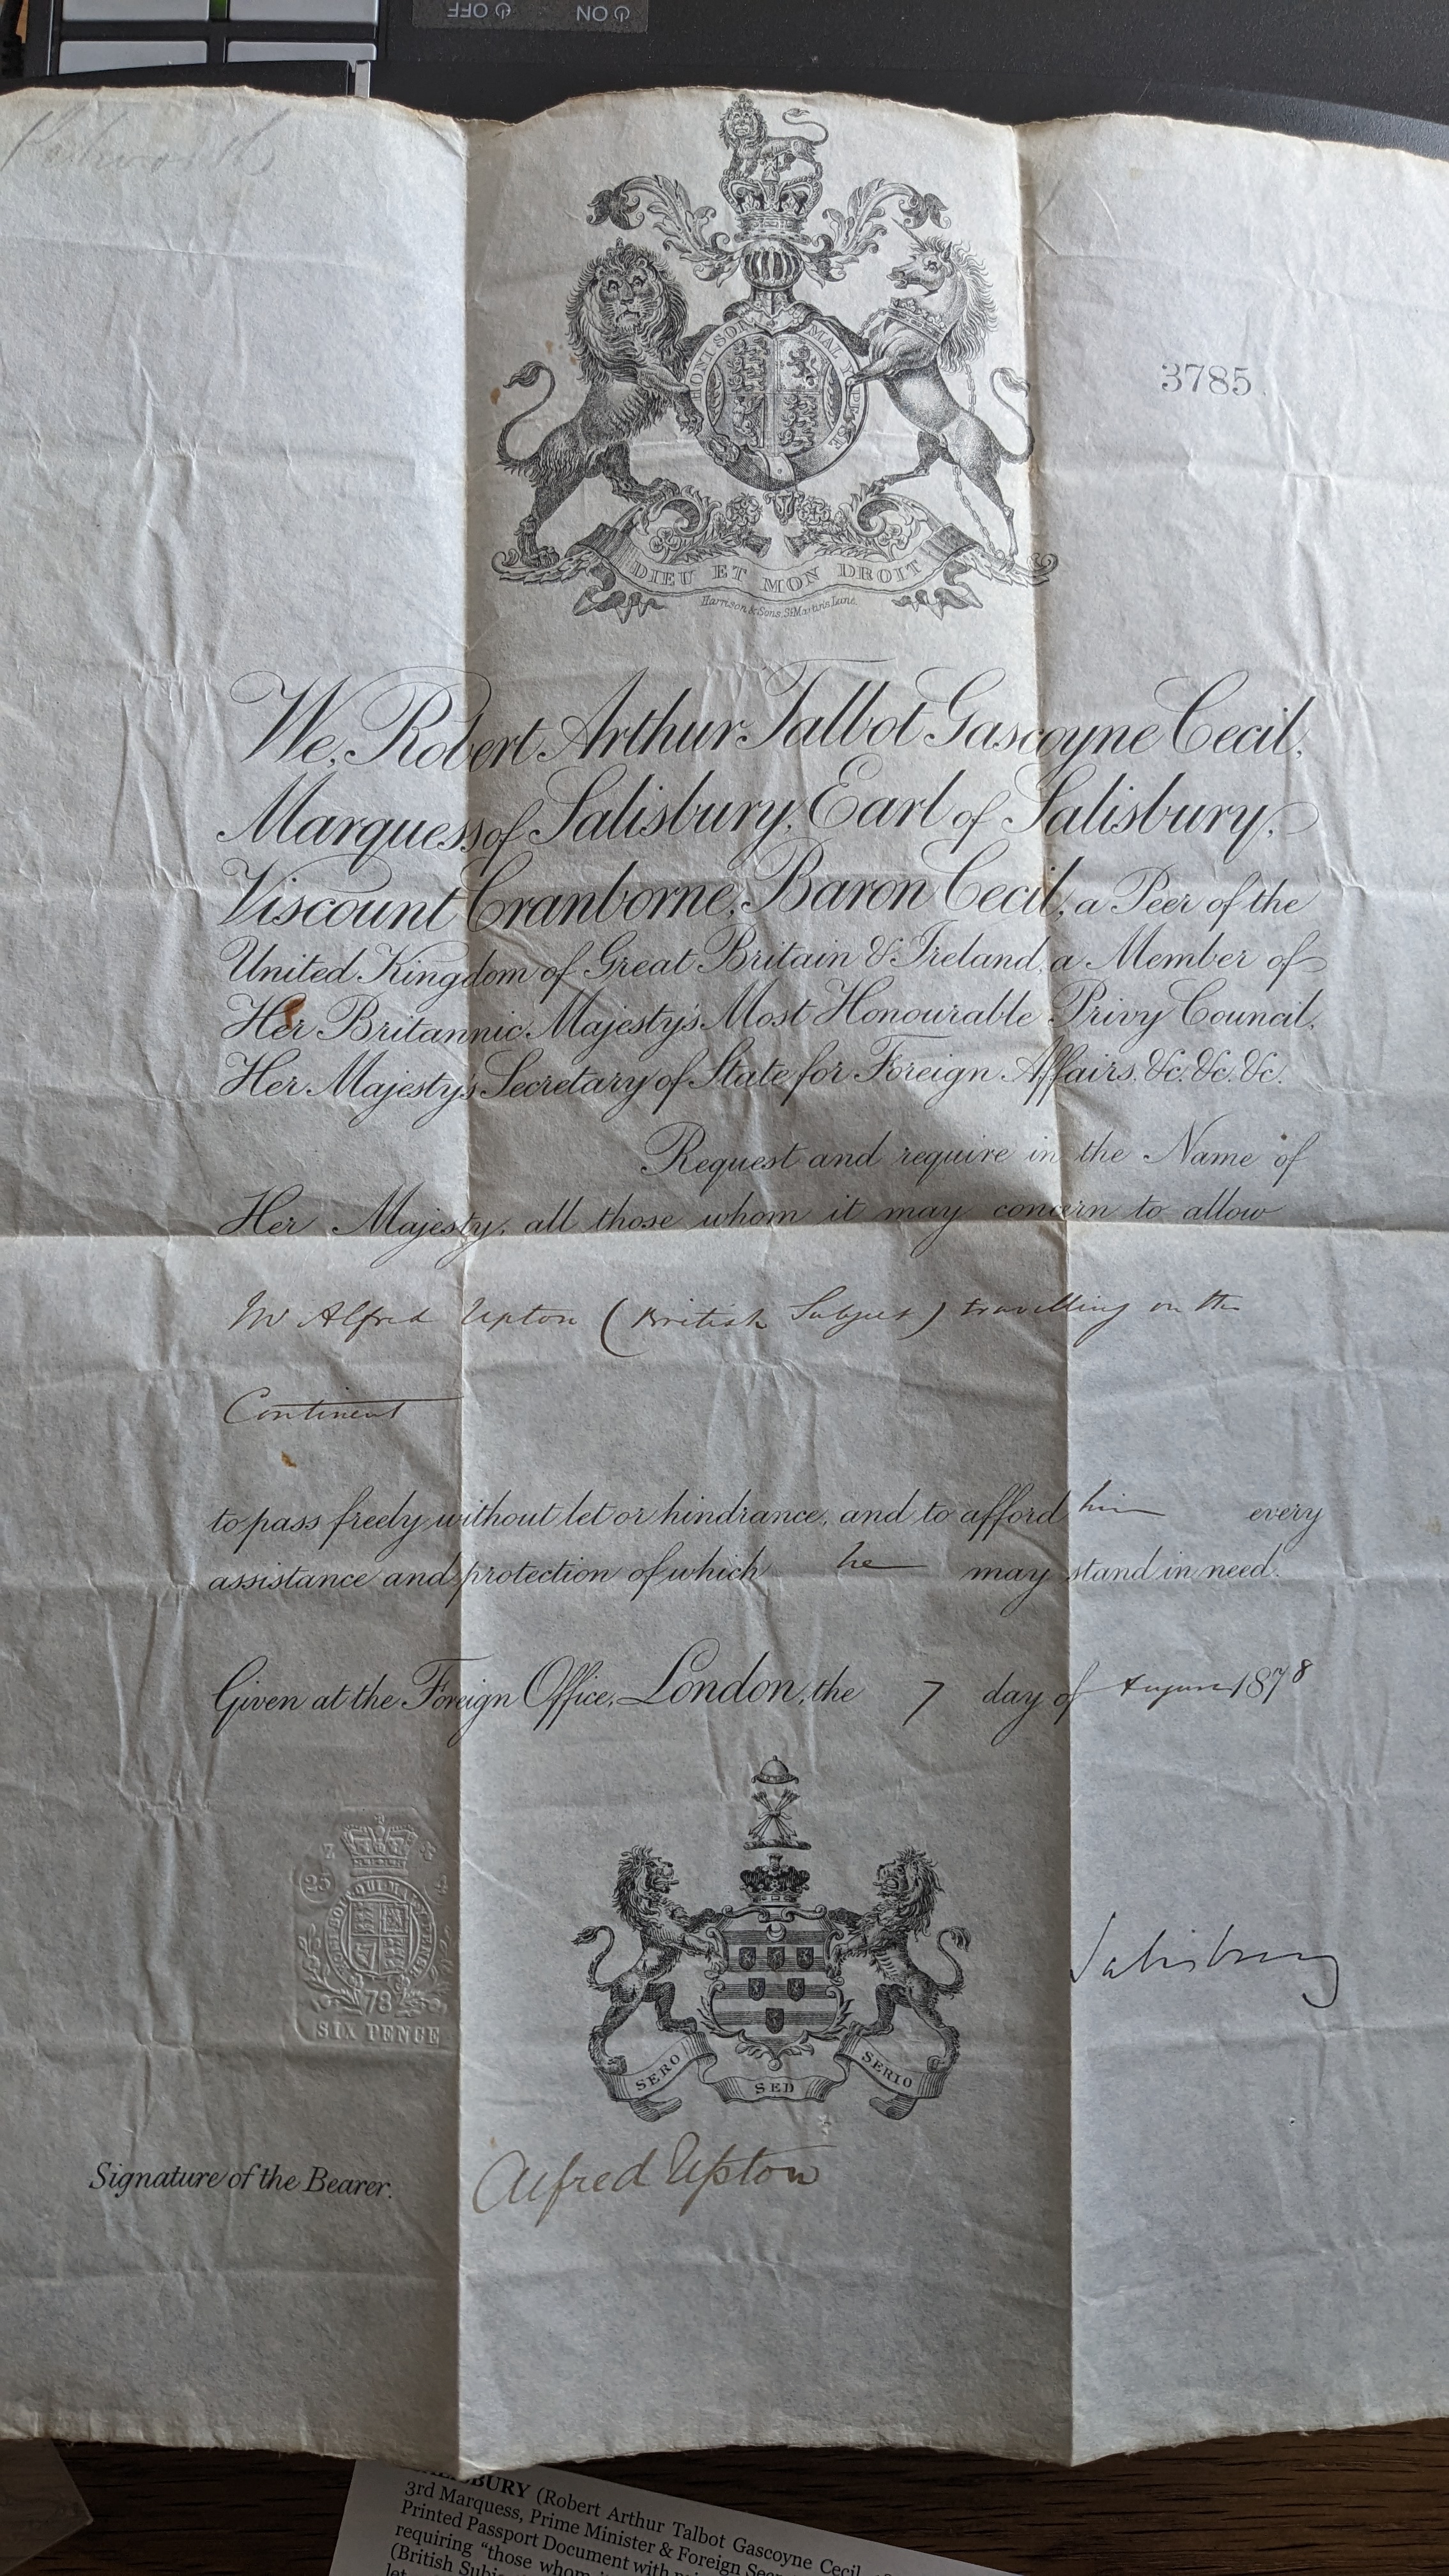 OFF ON
3785
HONI SOIT MAL
DIEU ET MON DROIT
Harrison & Sons. St. Martin's Lane.
We, Robert Arthur Talbot Gascoyne Cecil,
Marquess of Salisbury, Earl of Salisbury,
Viscount Cranborne, Baron Cecil, a Peer of the
United Kingdom of Great Britain & Ireland, a Member of
Her Britannic Majesty's Most Honourable Privy Council,
Her Majesty's Secretary of State for Foreign Affairs. &c. &c. &c.
Request and require in the Name of
Her Majesty, all those whom it may concern to allow
Mr Alfred Upton (British Subject) travelling on the
Continent
to pass freely without let or hindrance, and to afford him every
assistance and protection of which he may stand in need.
Given at the Foreign Office, London, the 7 day of August 1878
25
78
SIX PENCE
SERO SED SERIO
Salisbury
Signature of the Bearer. Alfred Upton
SALISBURY (Robert Arthur Talbot Gascoyne Cecil,
3rd Marquess, Prime Minister & Foreign
Printed Passport Document with
requiring "those whom
(British
let